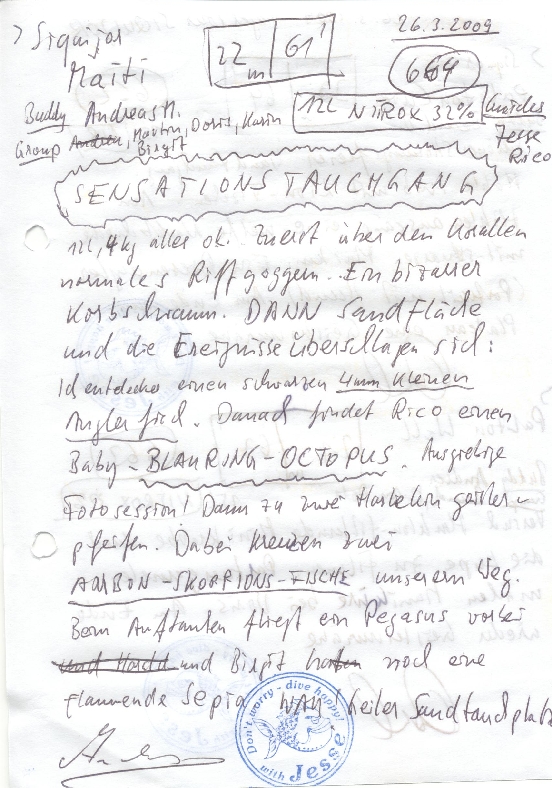 > Siquijor
Maiti
22 m 61'
26.3.2009
664
Buddy Andreas H.
Group Martin, Doris, Karin
Birgit
12L NITROX 32%
Guides
Jesse
Rico
SENSATIONSTAUCHGANG
12L, 4kg alles ok. Zuerst über den Korallen
normales Riffgoggeln. Ein bizarrer
Korbschwamm. DANN Sandfläche
und die Ereignisse überschlagen sich:
Ich entdecke einen schwarzen 4mm kleinen
Anglerfisch. Danach findet Rico einen
Baby-BLAURING-OCTOPUS. Ausgiebige
Fotosession! Dann zu zwei Harlekin geister-
pfeifen. Dabei kreuzen zwei
AMBON-SKORPIONS-FISCHE unseren Weg.
Beim Auftauchen fliegt ein Pegasus vorbei
und Birgit noch eine
flammende Sepia. WAU! Geiler Sandtauchplatz
Don't worry - dive happy!
with Jesse